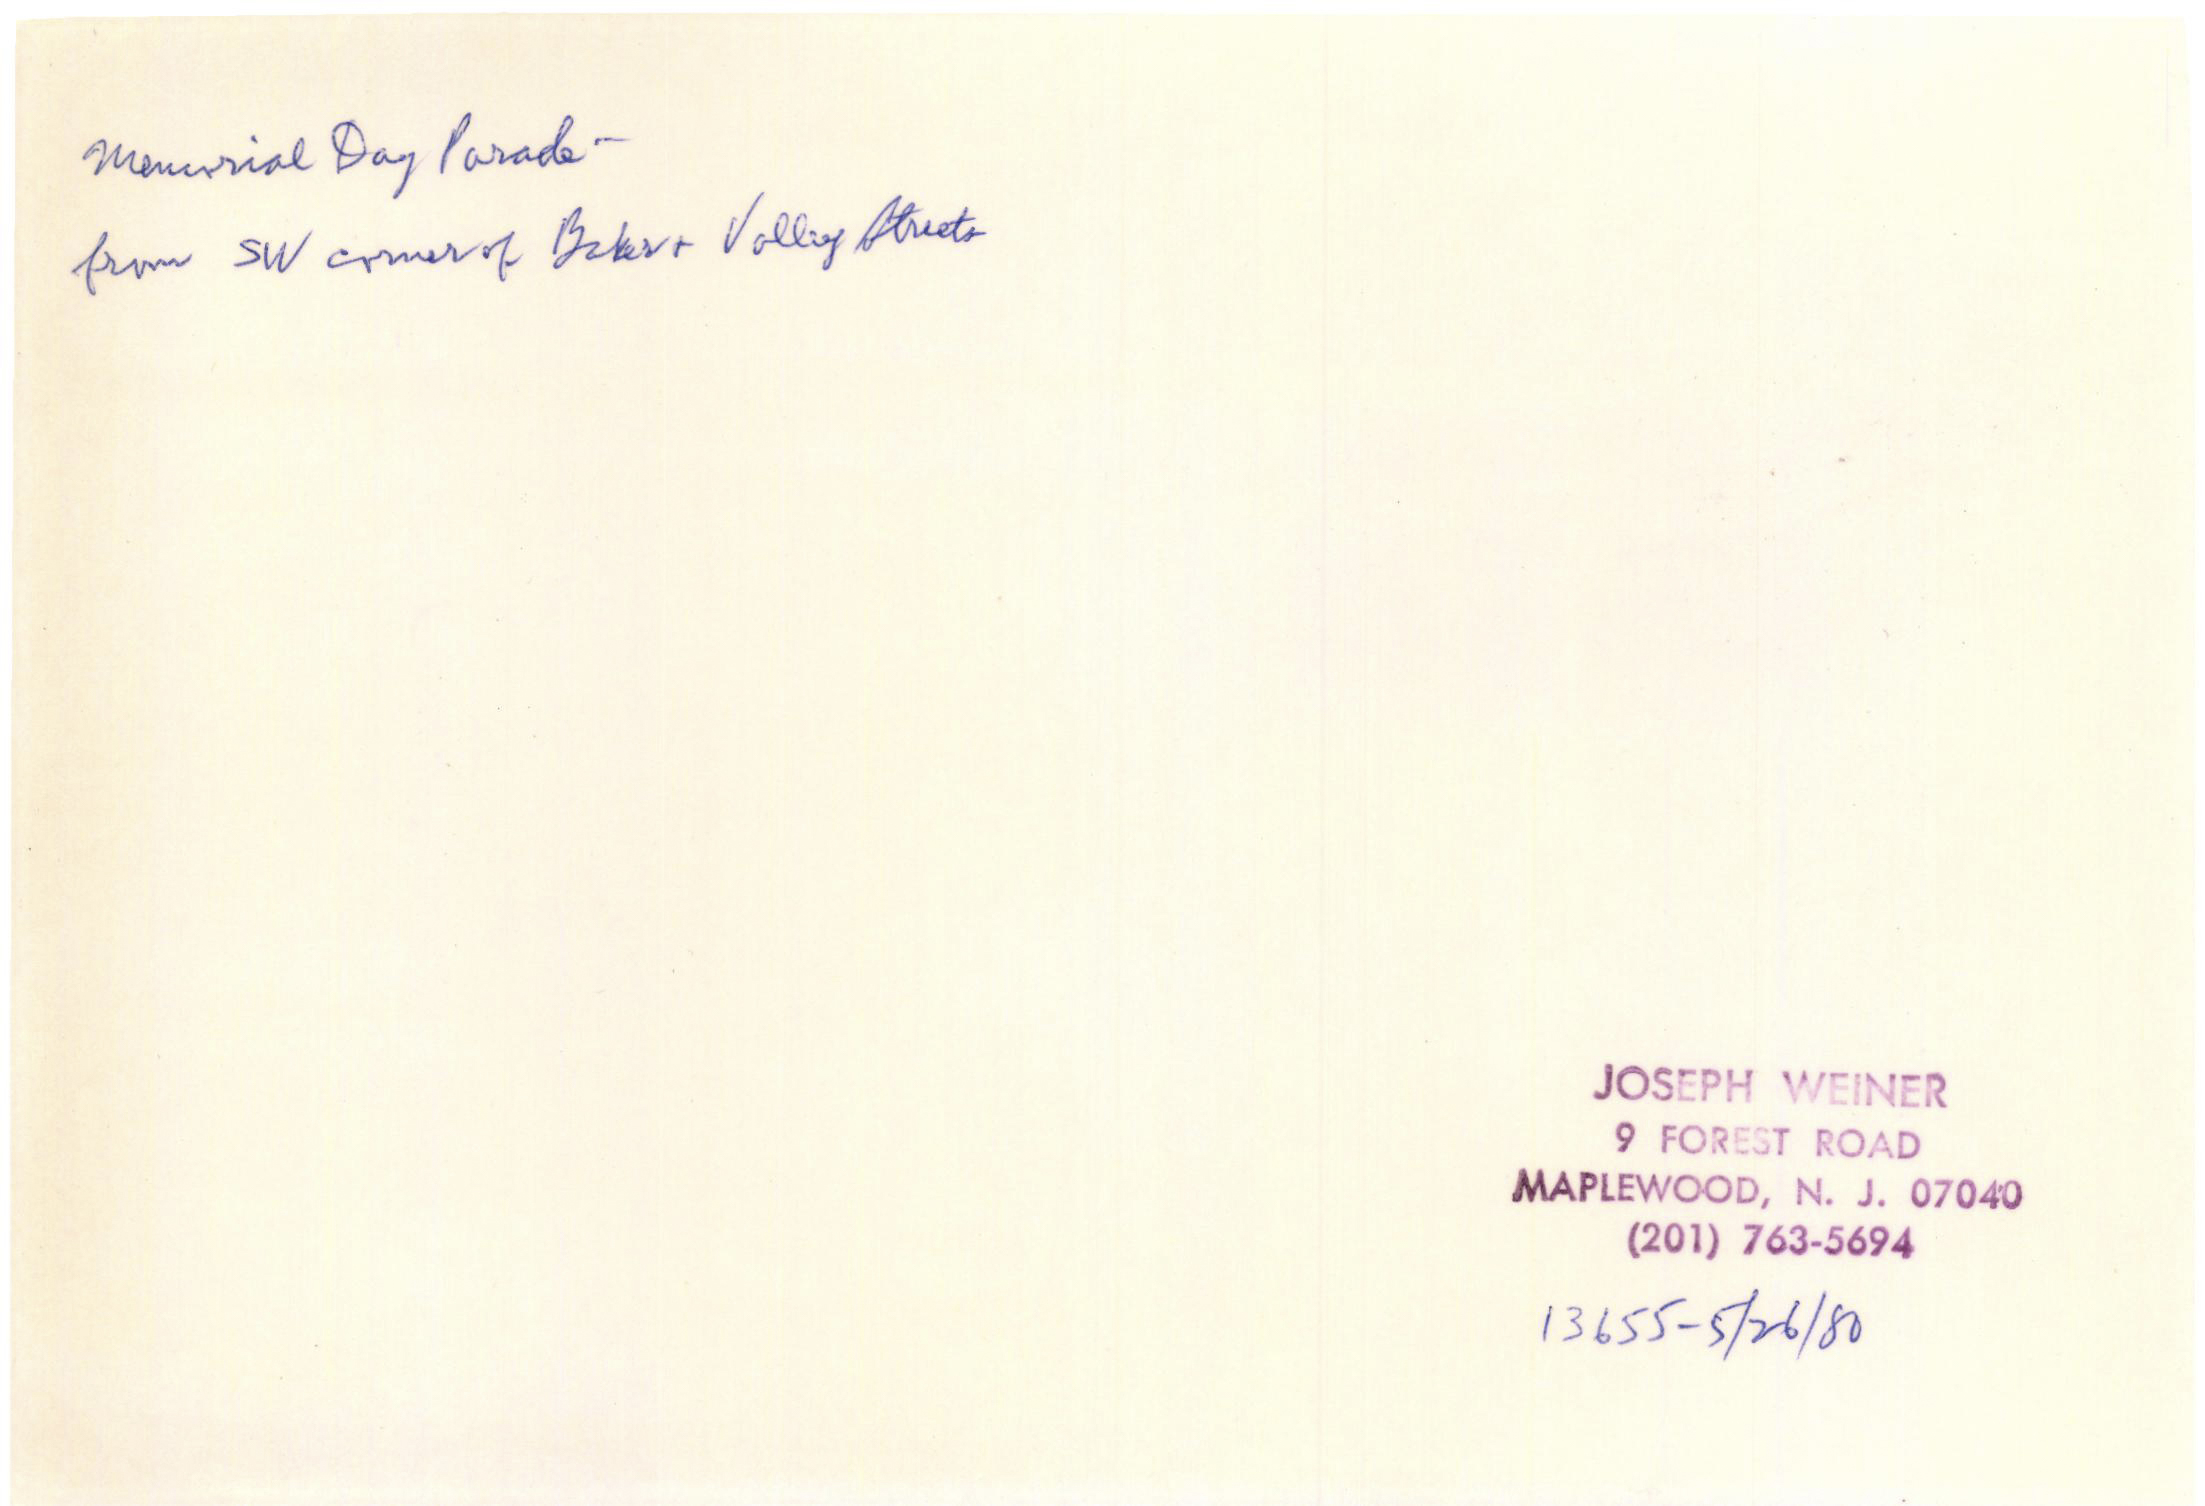 Memorial Day Parade -
from SW corner of Baker + Valley Streets
JOSEPH WEINER
9 FOREST ROAD
MAPLEWOOD, N. J. 07040
(201) 763-5694
13655-5/26/80